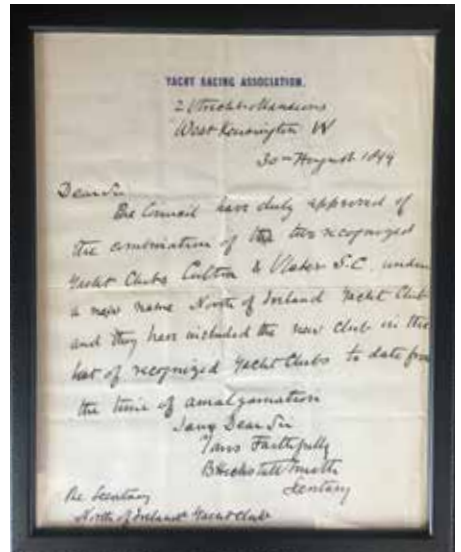 YACHT RACING ASSOCIATION.
2 Mansions
West Kensington W
30th August 1899
Dear Sir
The Council have duly approved of
the combination of the two recognized
Yacht Clubs Cultra & Ulster S.C. under
a new name North of Ireland Yacht Club
and they have included the new club in the
list of recognized Yacht Clubs to date from
the time of amalgamation
I am Dear Sir
Yours Faithfully
B Heckstall Smith
Secretary
The Secretary
North of Ireland Yacht Club